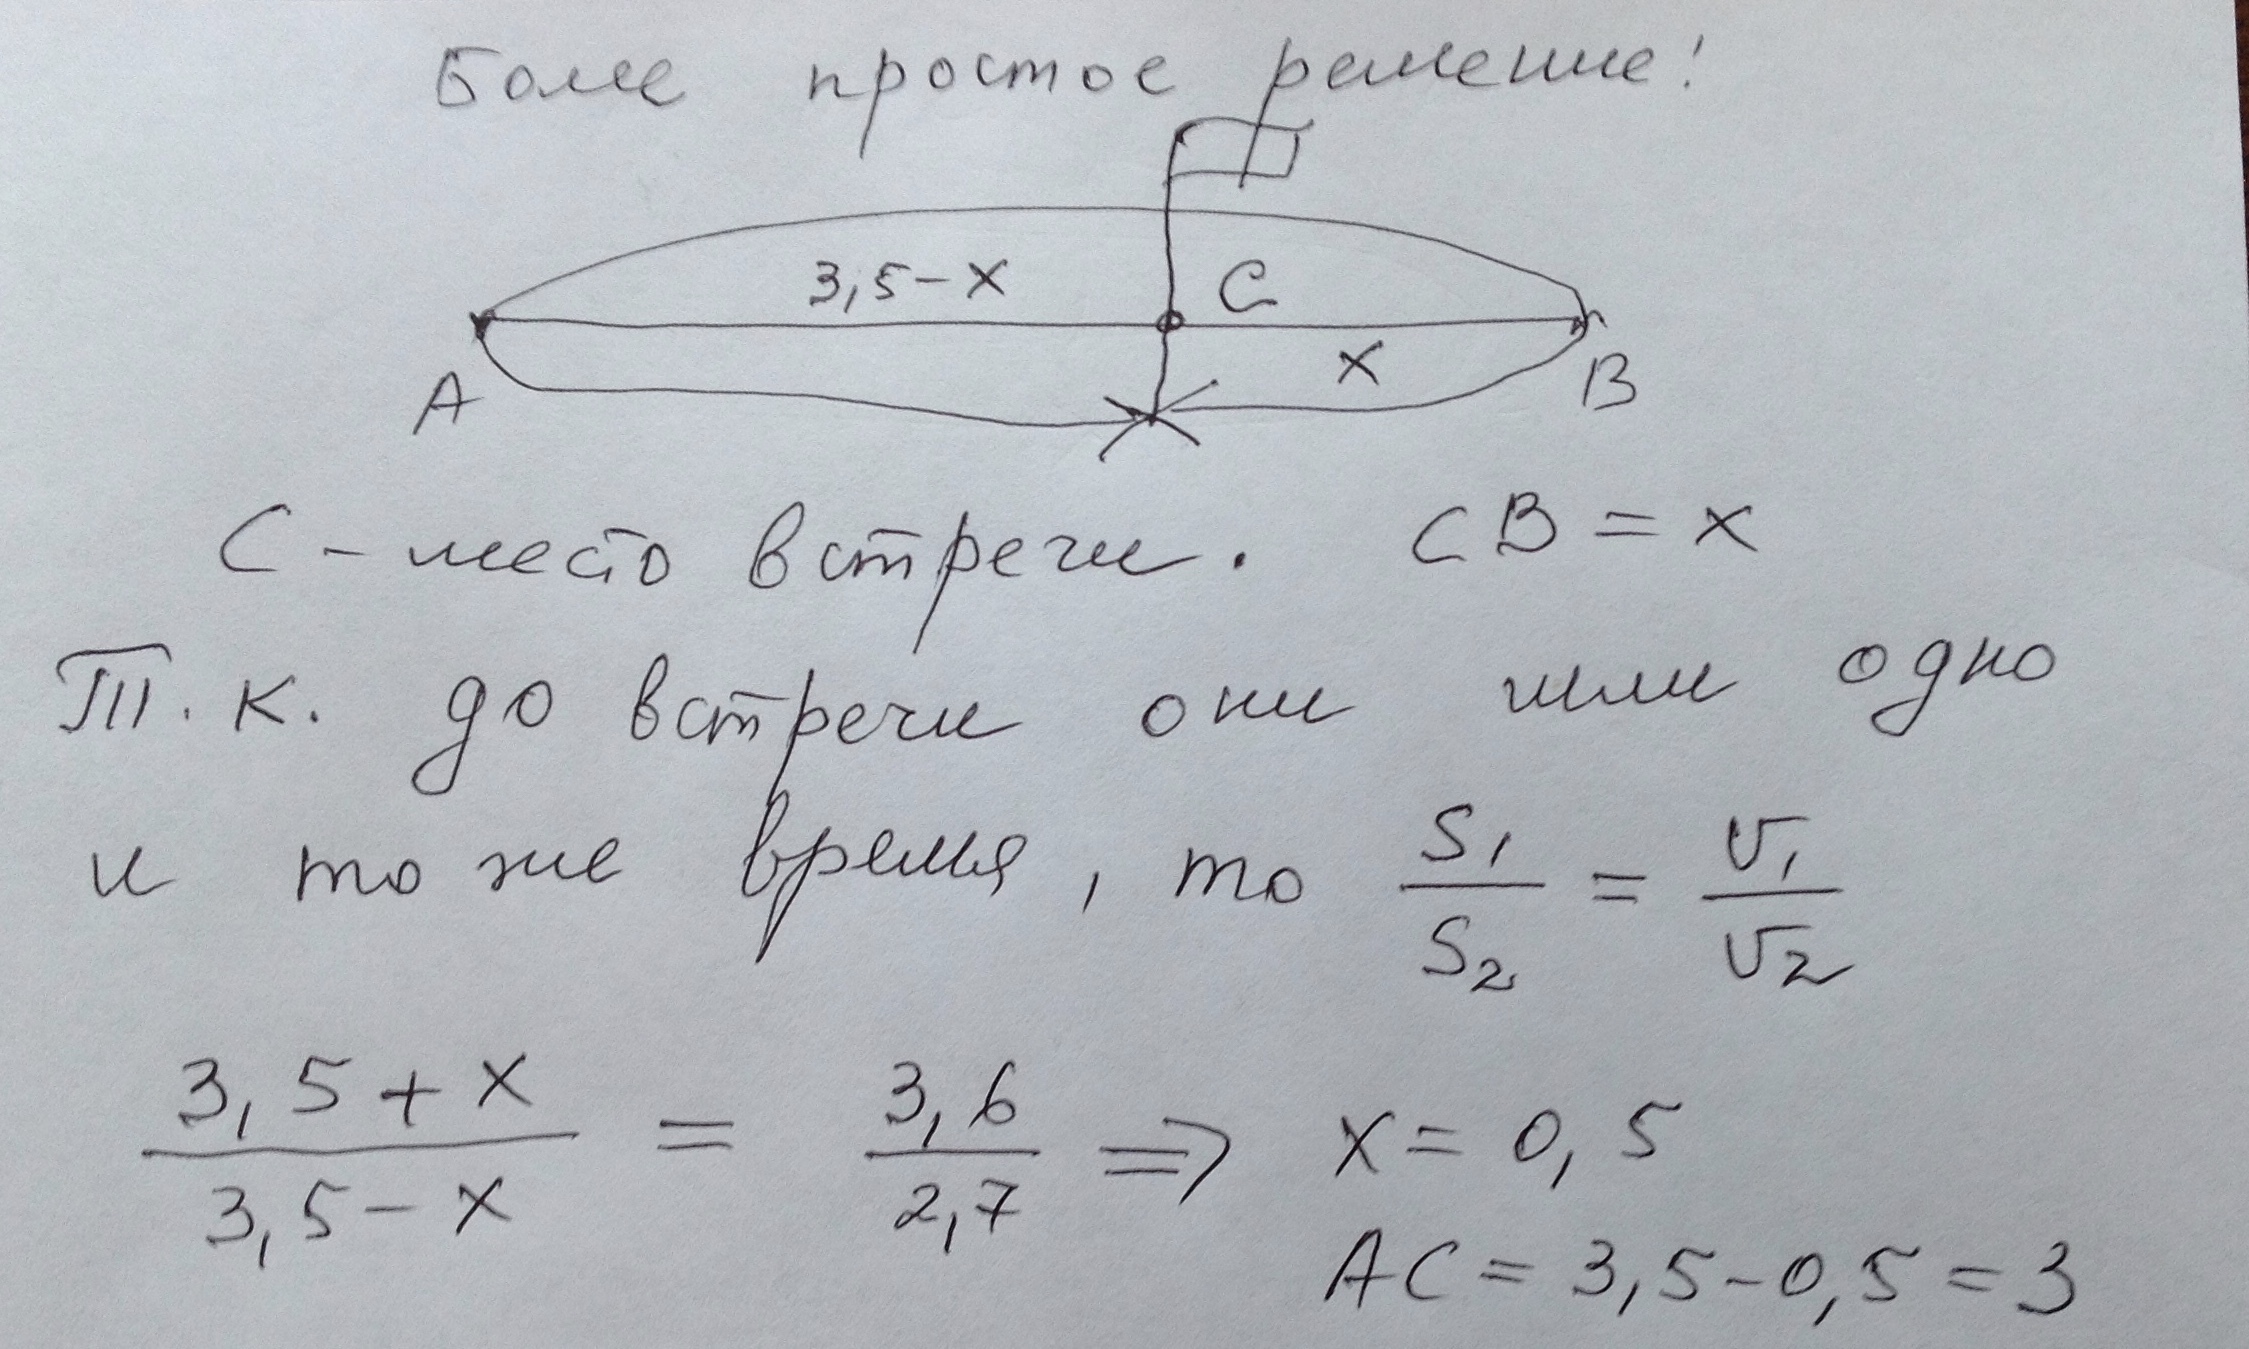 Более простое решение!
3,5-x C
A x B
C - место встречи. CB = x
Т.к. до встречи они шли одно
и то же время, то S₁/S₂ = V₁/V₂
(3,5+x)/(3,5-x) = 3,6/2,7 ⇒ x = 0,5
AC = 3,5-0,5 = 3